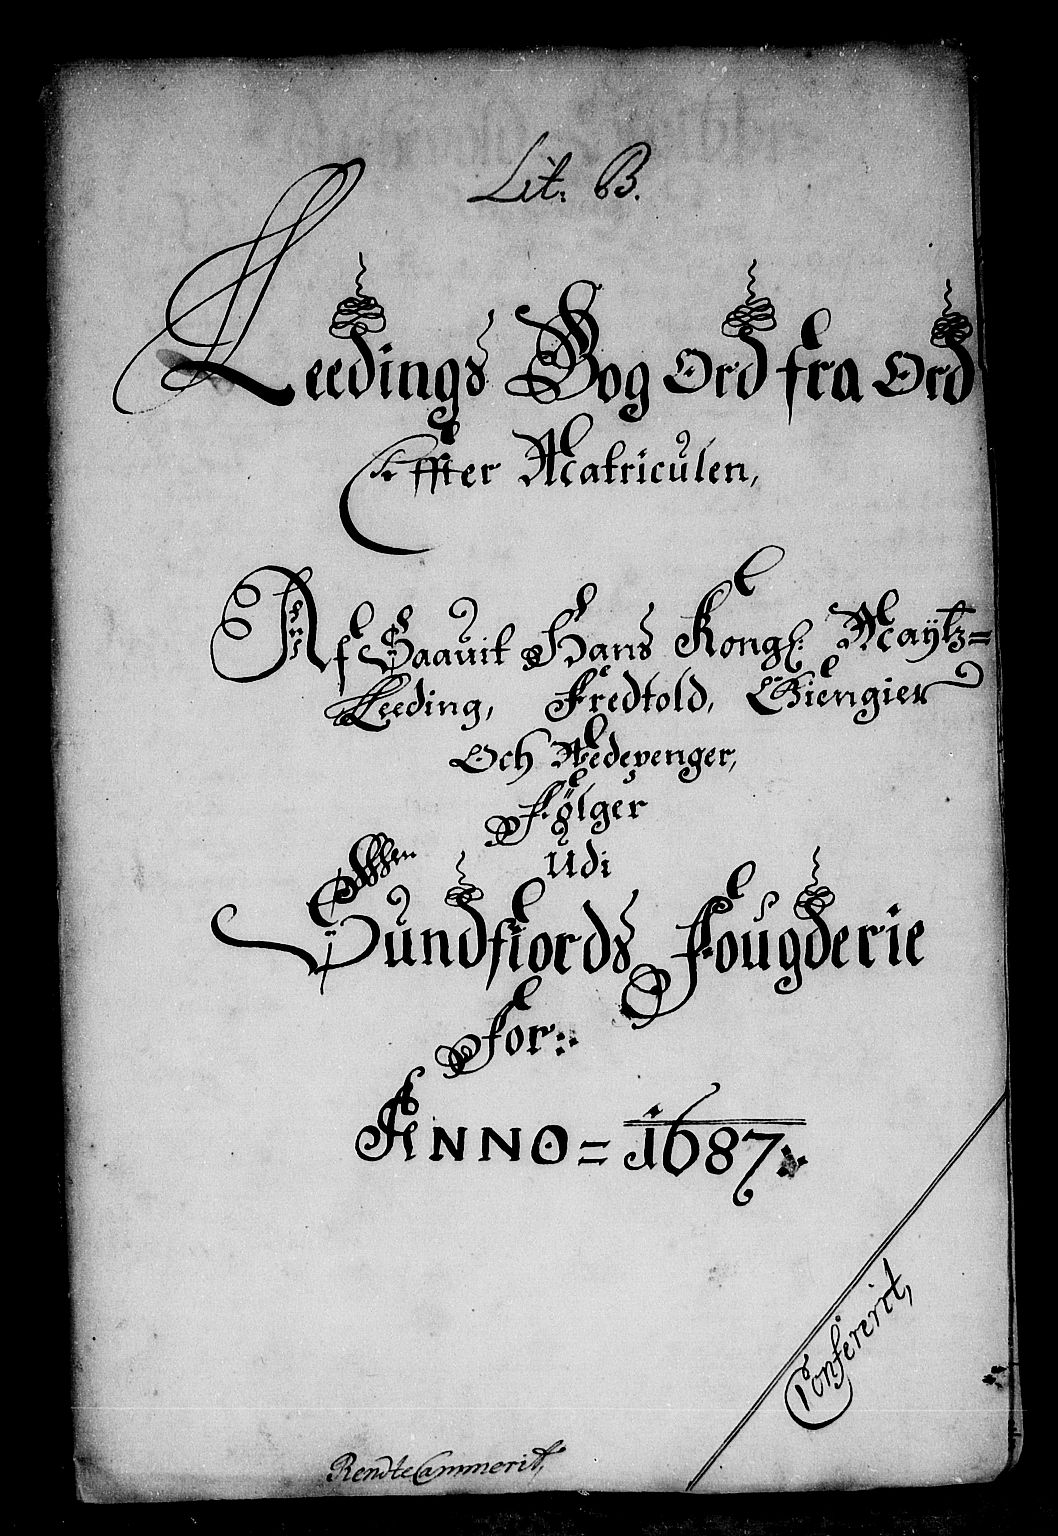 Lit: B.
Leedings Bog Ord fra Ord
Effter Matriculen,
Af Hans Kongl: Maytz=
Leeding, Fredtold, Giengier
Och Wedepenger,
Følger
Udi
Sundfiords Fougderie
For:
ANNO = 1687:
Confererit,
RendteCammerit,